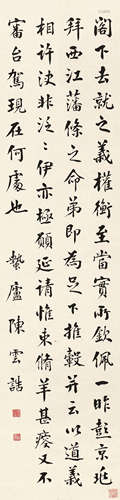 閣下去就之義權衡至當實所欽佩一昨彭京兆
拜西江藩條之命弟即為足下推轂并云以道義
相許決非泛泛伊亦極願延請惟束脩羊甚瘠又不
審台駕現在何處也　蟄廬陳雲誥